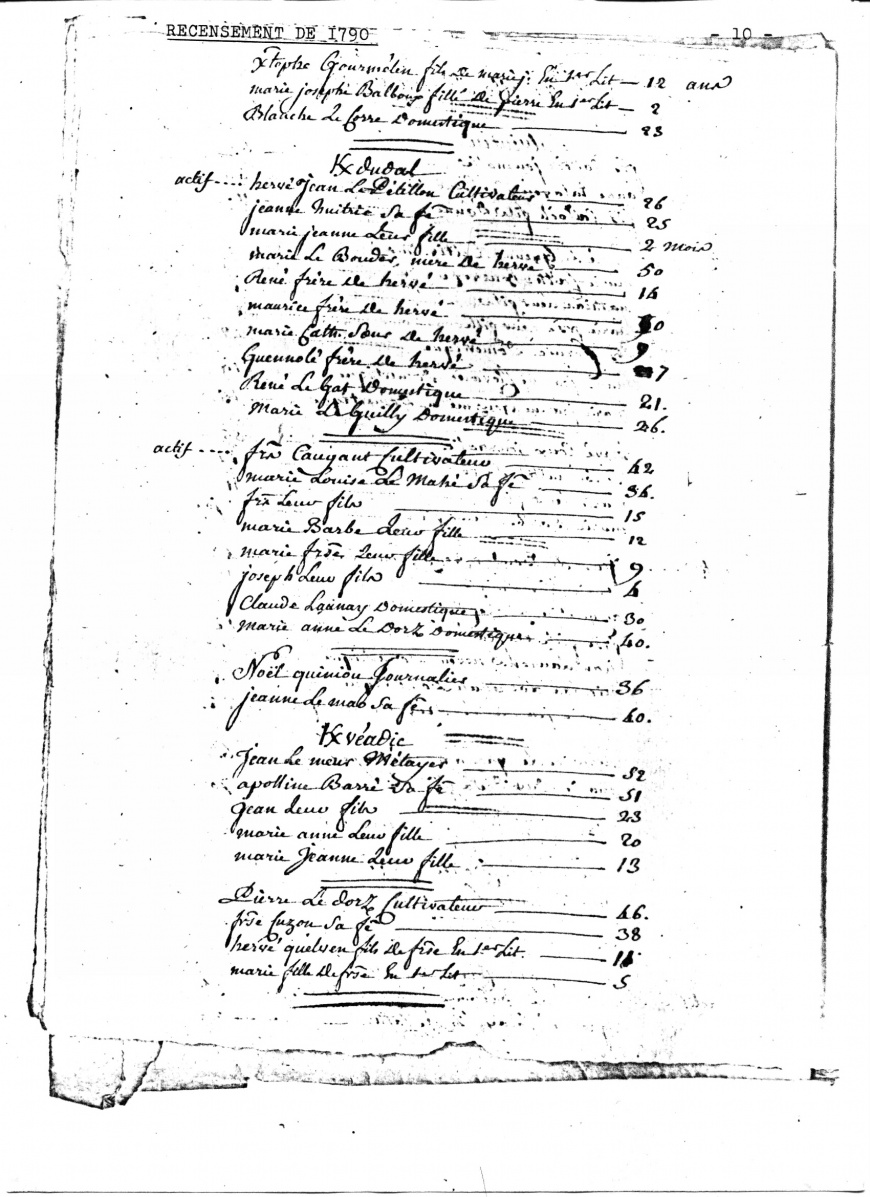 RECENSEMENT DE 1790 - 10 -
xtophe Gourmelin fils de marie j. En 1er Lit — 12 ans
marie josephe Balbous fille de pierre En 1er Lit — 2
Blanche Le Corre Domestique — 23
Kx dudal
actif ---- hervé Jean Le Pétillon Cultivateur — 26
jeanne Sa fe — 25
marie jeanne Leur fille — 2 mois
marie Le Boudec, mère de hervé — 50
René frère de hervé — 14
maurice frère de hervé — 10
marie Cath. Sœur de hervé — 9
Guennolé frère de hervé — 7
René Le Gat Domestique — 21.
Marie Le Guilly Domestique — 26.
actif ---- frs Caugant Cultivateur — 42
marie Louise Le Mahé Sa fe — 36.
frs Leur fils — 15
marie Barbe Leur fille — 12
marie frse Leur fille — 9
joseph Leur fils — 4
Claude Domestique — 30
marie anne Le Dorz Domestique — 40.
Noël quiniou Journalier — 36
jeanne Le mao Sa fe — 40.
Kx véadic
Jean Le meur Métayer — 52
apolline Barré Sa fe — 51
Jean Leur fils — 23
marie anne Leur fille — 20
marie Jeanne Leur fille — 13
Pierre Le dorz Cultivateur — 46.
frse Cuzon Sa fe — 38
hervé quelven fils de frse En 1er Lit. — 11
marie fille de frse En 1er Lit — 5